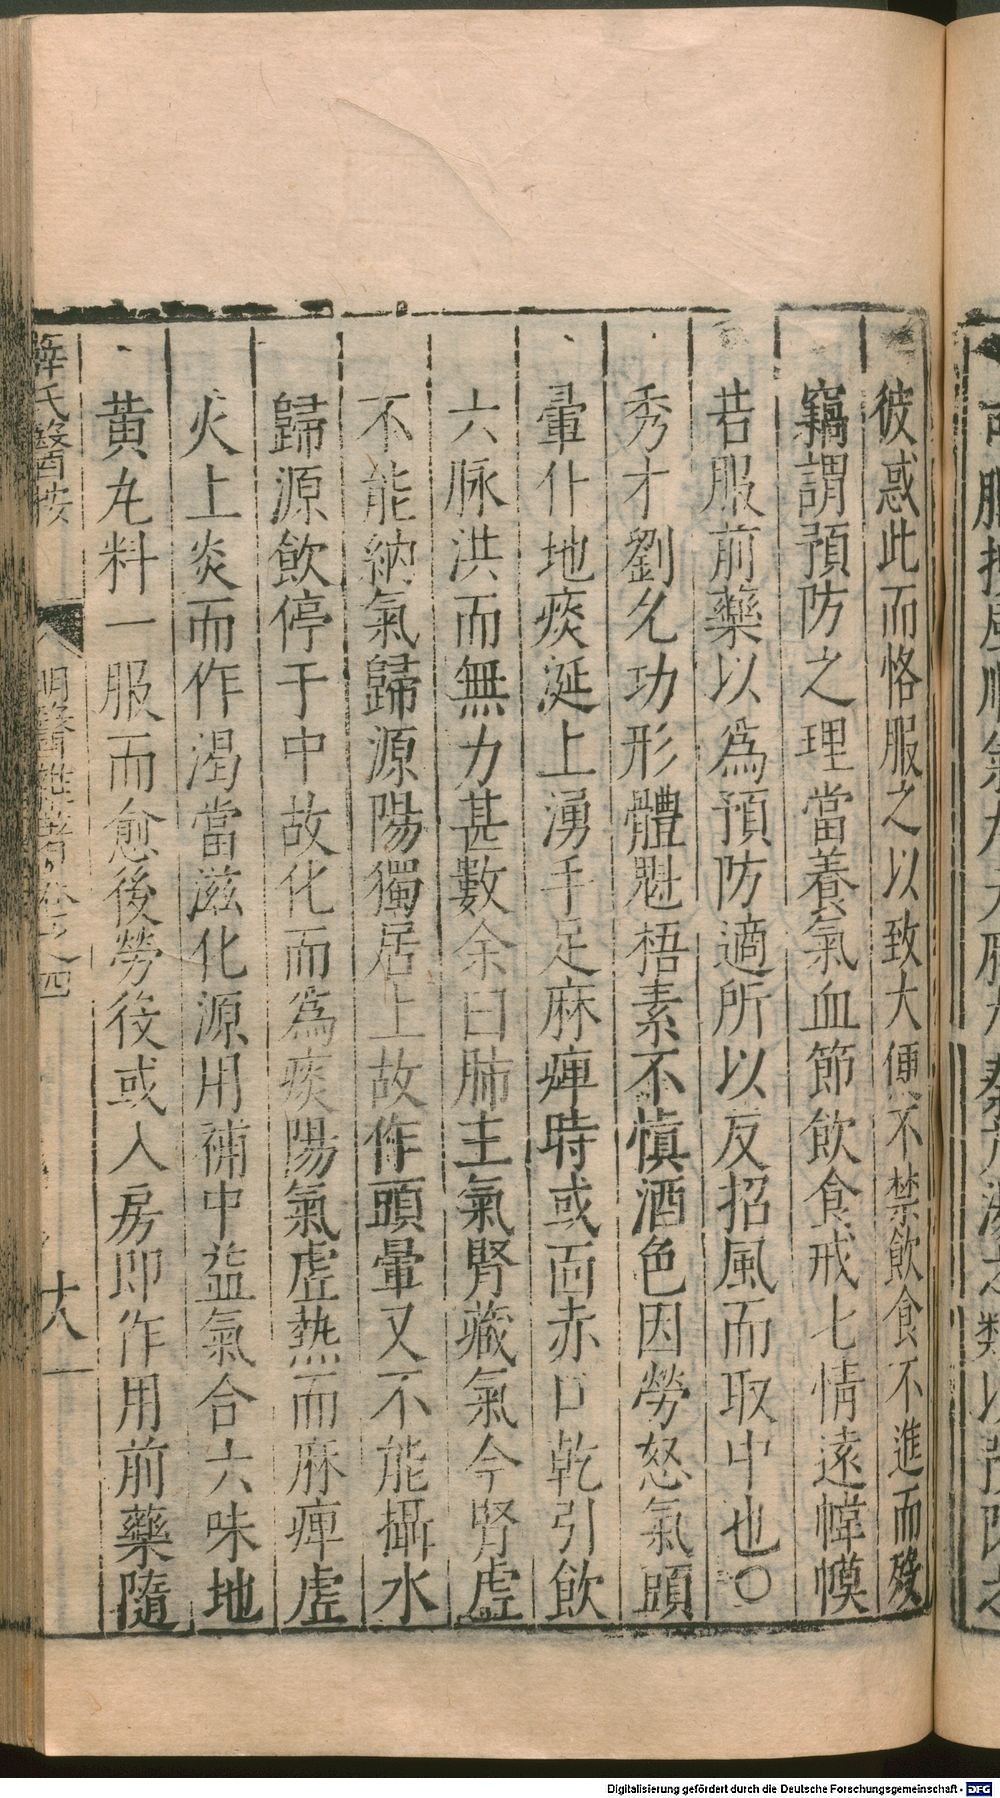 彼惑此而恪服之以致大便不禁飲食不進而殁
竊謂預防之理當養氣血節飲食戒七情遠幃幙
若服前藥以爲預防適所以反招風而取中也〇
秀才劉允功形體魁梧素不慎酒色因勞怒氣頭
暈仆地痰涎上湧手足麻痺時或面赤口乾引飲
六脉洪而無力甚數余曰肺主氣腎藏氣今腎虛
不能納氣歸源陽獨居上故作頭暈又不能攝水
歸源飲停于中故化而爲痰陽氣虛熱而麻痺虛
火上炎而作渴當滋化源用補中益氣合六味地
黃丸料一服而愈後勞役或入房即作用前藥隨
薛氏醫按
明醫雜著卷之四
十八
Digitalisierung gefördert durch die Deutsche Forschungsgemeinschaft - DFG